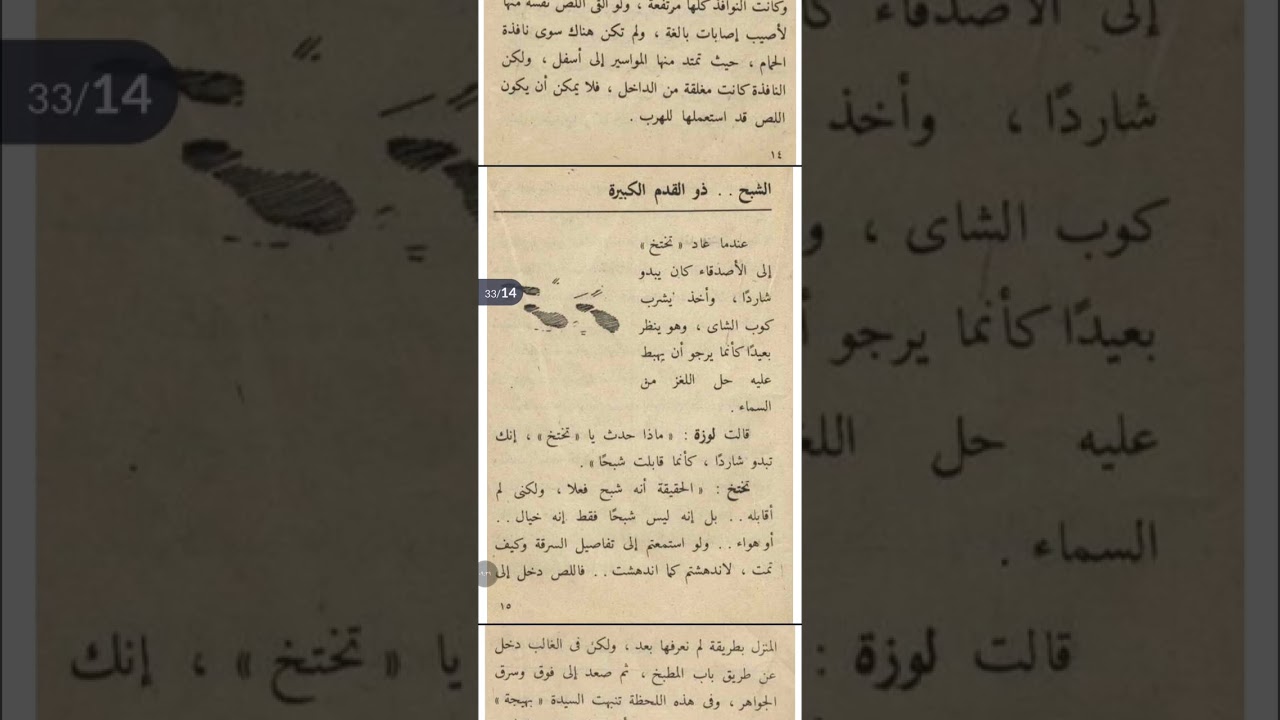 وكانت النوافذ كلها مرتفعة ، ولو ألقى اللص نفسه منها
لأصيب إصابات بالغة ، ولم تكن هناك سوى نافذة
الحمام ، حيث تمتد منها المواسير إلى أسفل ، ولكن
النافذة كانت مغلقة من الداخل ، فلا يمكن أن يكون
اللص قد استعملها للهرب .
١٤
الشبح . . ذو القدم الكبيرة
عندما عاد « تختخ »
إلى الأصدقاء كان يبدو
شاردًا ، وأخذ يشرب
كوب الشاى ، وهو ينظر
بعيدًا كأنما يرجو أن يهبط
عليه حل اللغز من
السماء .
33/14
قالت لوزة : « ماذا حدث يا « تختخ » ، إنك
تبدو شاردًا ، كأنما قابلت شبحًا » .
تختخ : « الحقيقة أنه شبح فعلا ، ولكنى لم
أقابله . . بل إنه ليس شبحًا فقط إنه خيال . .
أو هواء . . ولو استمعتم إلى تفاصيل السرقة وكيف
تمت ، لاندهشتم كما اندهشت . . فاللص دخل إلى
١٥
المنزل بطريقة لم نعرفها بعد ، ولكن فى الغالب دخل
عن طريق باب المطبخ ، ثم صعد إلى فوق وسرق
الجواهر ، وفى هذه اللحظة تنبهت السيدة « بهيجة »
33/14
إلى الأصدقاء
شاردًا ، وأخذ
كوب الشاى ، و
بعيدًا كأنما يرجو
عليه حل
السماء .
قالت لوزة :
يا « تختخ » ، إنك